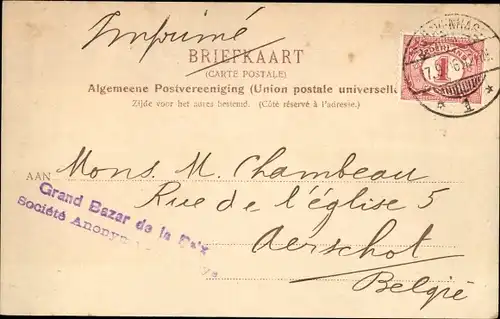 Imprimé
BRIEFKAART
(CARTE POSTALE)
Algemeene Postvereeniging (Union postale universelle
Zijde voor het adres bestemd. (Côté réservé à l'adresse.)
1
1
AAN Mons. M. Chambeau
Rue de l'église 5
Aerschot
Belgié
Grand Bazar de la Paix
Société